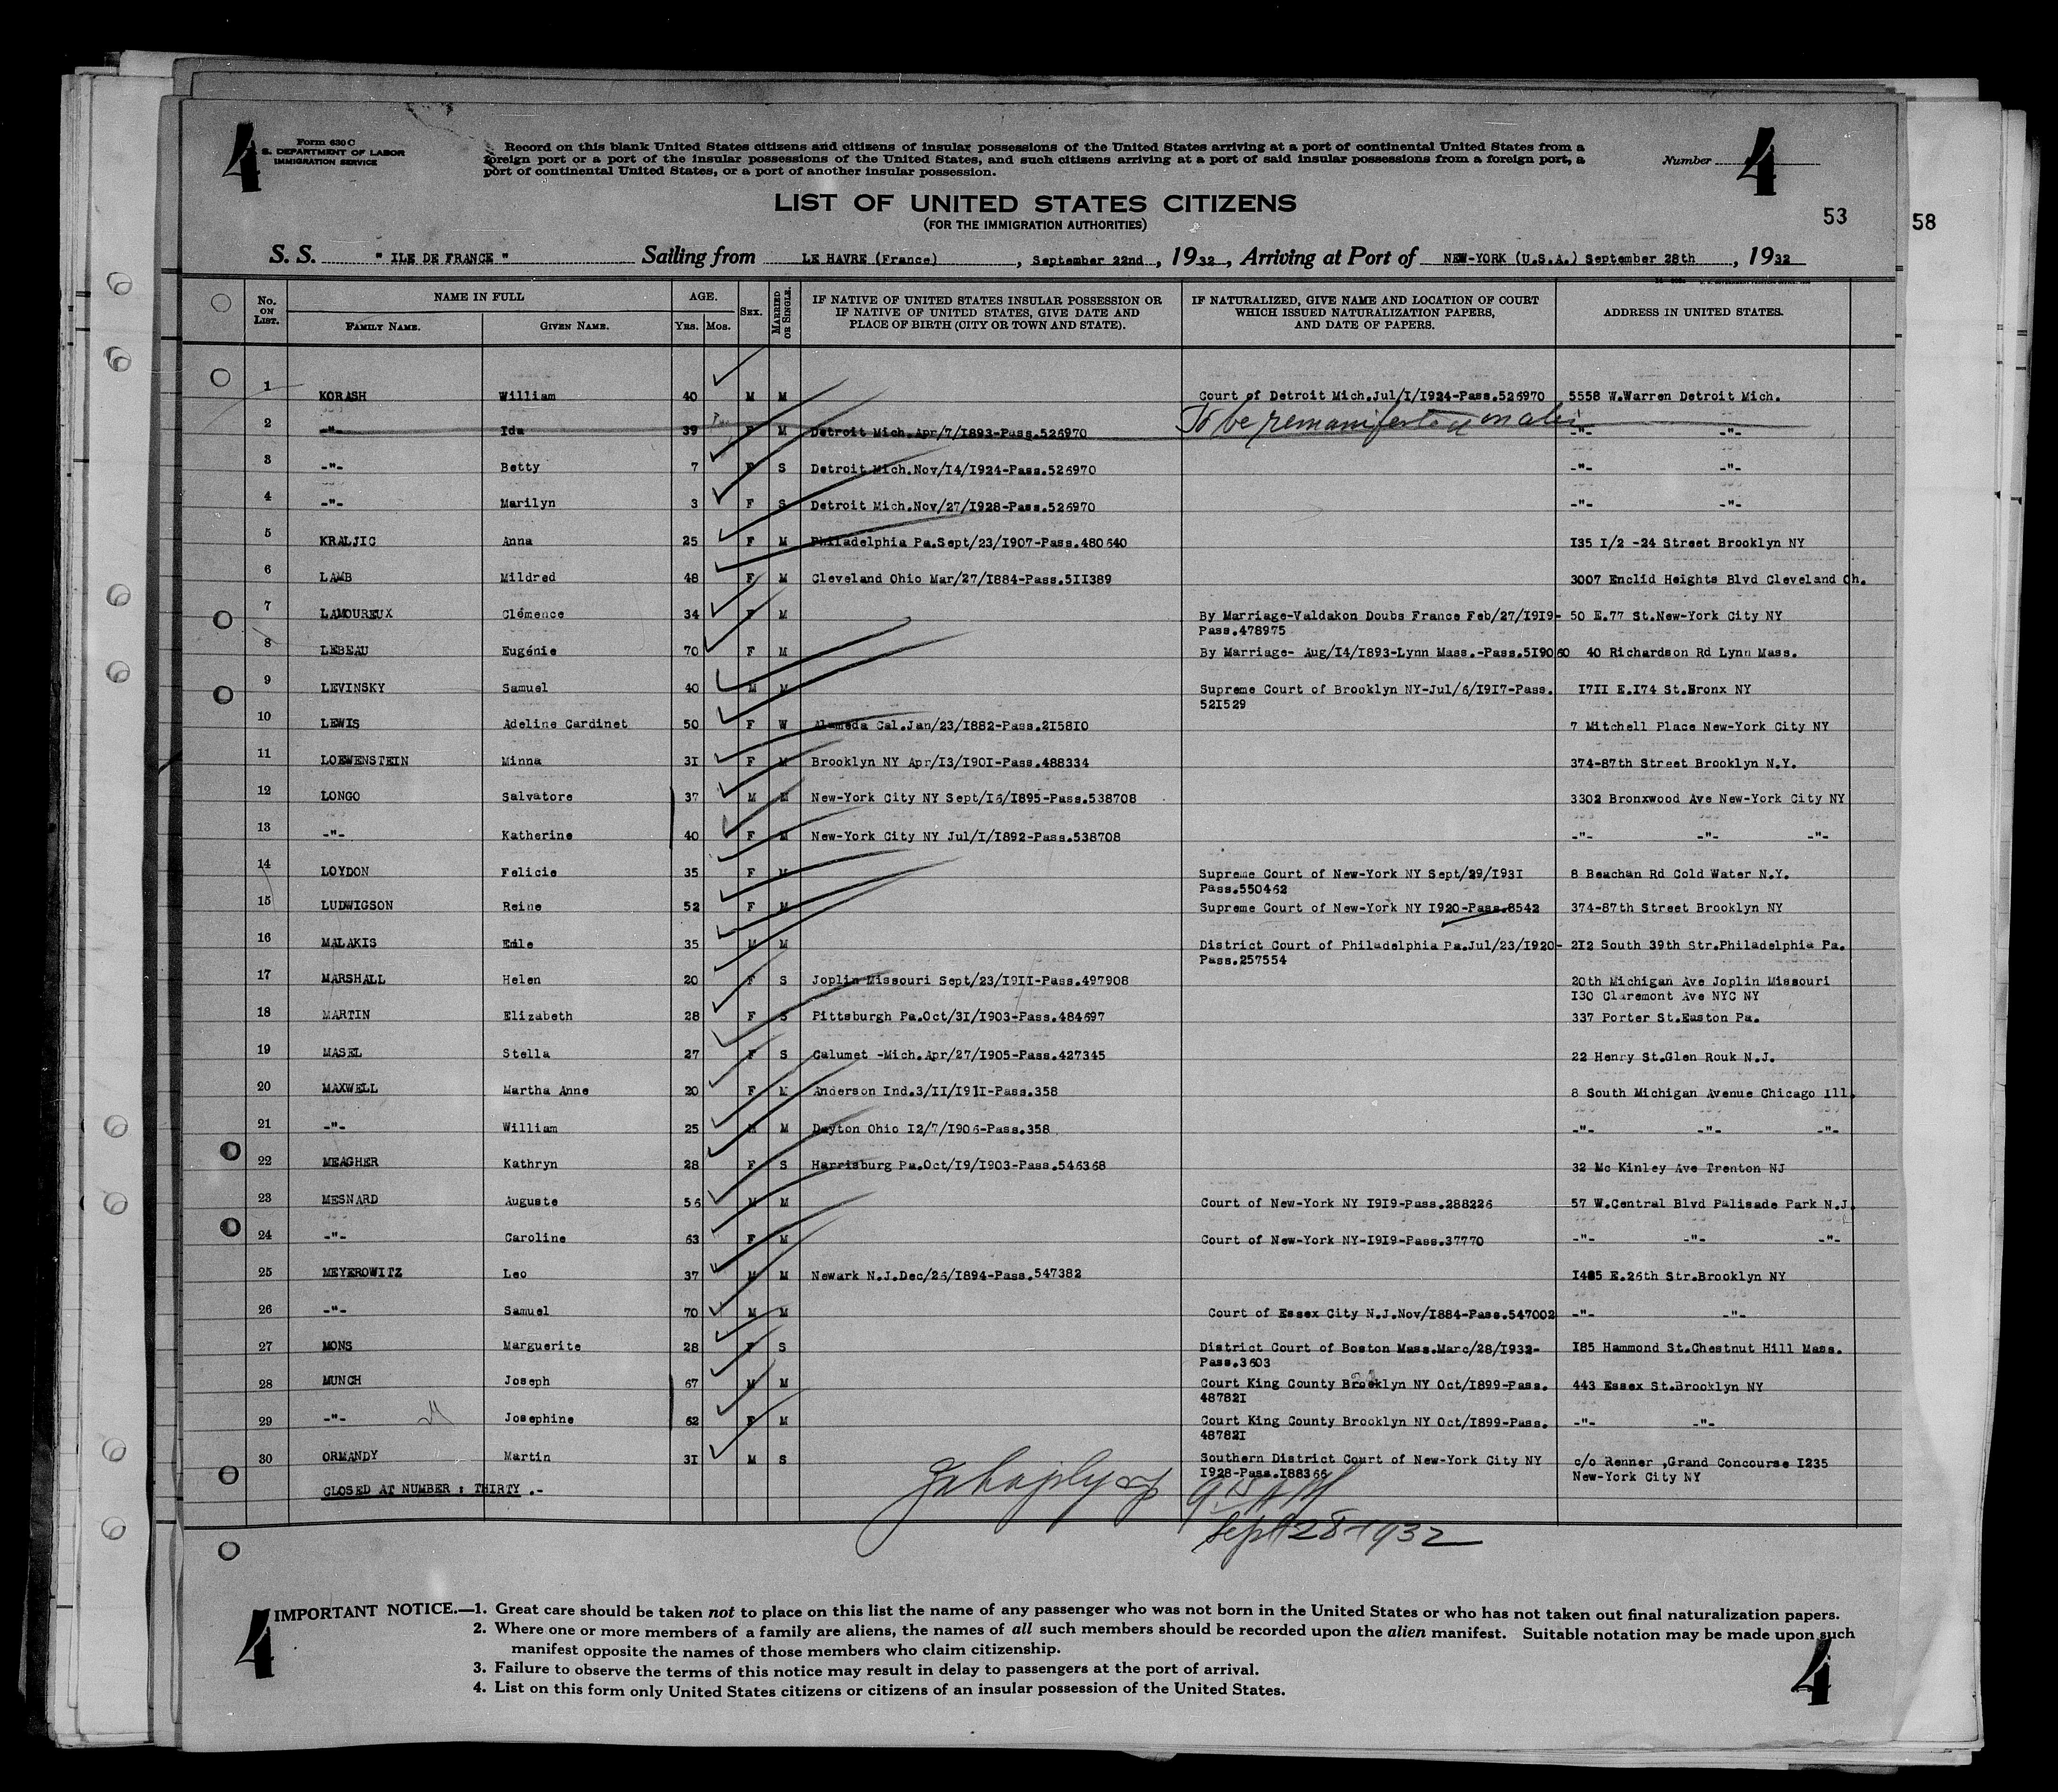 4
Form 630 C
S. DEPARTMENT OF LABOR
IMMIGRATION SERVICE
Record on this blank United States citizens and citizens of insular possessions of the United States arriving at a port of continental United States from a
foreign port or a port of the insular possessions of the United States, and such citizens arriving at a port of said insular possessions from a foreign port, a
port of continental United States, or a port of another insular possession.
Number 4
LIST OF UNITED STATES CITIZENS
(FOR THE IMMIGRATION AUTHORITIES)
53
58
S. S. " ILE DE FRANCE " Sailing from LE HAVRE (France) , September 22nd , 1932 , Arriving at Port of NEW-YORK (U.S.A.) September 28th , 1932
No. ON LIST. NAME IN FULL AGE. SEX. MARRIED OR SINGLE. IF NATIVE OF UNITED STATES INSULAR POSSESSION OR IF NATIVE OF UNITED STATES, GIVE DATE AND PLACE OF BIRTH (CITY OR TOWN AND STATE). IF NATURALIZED, GIVE NAME AND LOCATION OF COURT WHICH ISSUED NATURALIZATION PAPERS, AND DATE OF PAPERS. ADDRESS IN UNITED STATES.
FAMILY NAME. GIVEN NAME. YRS. MOS.
1 KORASH William 40 M M Court of Detroit Mich.Jul/I/I924-Pass.526970 5558 W.Warren Detroit Mich.
To be remanifested on alien
2 -"- Ida 39 F M Detroit Mich.Apr/7/I893-Pass.526970 -"- -"-
3 -"- Betty 7 F S Detroit Mich.Nov/I4/I924-Pass.526970 -"- -"-
4 -"- Marilyn 3 F S Detroit Mich.Nov/27/I928-Pass.526970 -"- -"-
5 KRALJIC Anna 25 F M Philadelphia Pa.Sept/23/I907-Pass.480640 I35 I/2 -24 Street Brooklyn NY
6 LAMB Mildred 48 F M Cleveland Ohio Mar/27/I884-Pass.5II389 3007 Enclid Heights Blvd Cleveland Oh.
7 LAMOUREUX Clémence 34 F M By Marriage-Valdakon Doubs France Feb/27/I9I9- 50 E.77 St.New-York City NY
Pass.478975
8 LEBEAU Eugénie 70 F M By Marriage- Aug/I4/I893-Lynn Mass.-Pass.5I9060 40 Richardson Rd Lynn Mass.
9 LEVINSKY Samuel 40 M M Supreme Court of Brooklyn NY-Jul/6/I9I7-Pass. I7II E.I74 St.Bronx NY
52I529
10 LEWIS Adeline Cardinet 50 F W Alameda Cal.Jan/23/I882-Pass.2I58I0 7 Mitchell Place New-York City NY
11 LOEWENSTEIN Minna 3I F M Brooklyn NY Apr/I3/I90I-Pass.488334 374-87th Street Brooklyn N.Y.
12 LONGO Salvatore 37 M M New-York City NY Sept/I6/I895-Pass.538708 3302 Bronxwood Ave New-York City NY
13 -"- Katherine 40 F M New-York City NY Jul/I/I892-Pass.538708 -"- -"- -"-
14 LOYDON Felicie 35 F M Supreme Court of New-York NY Sept/29/I93I 8 Beachan Rd Cold Water N.Y.
Pass.550462
15 LUDWIGSON Reine 52 F M Supreme Court of New-York NY I920-Pass.8542 374-87th Street Brooklyn NY
16 MALAKIS Emile 35 M M District Court of Philadelphia Pa.Jul/23/I920- 2I2 South 39th Str.Philadelphia Pa.
Pass.257554
17 MARSHALL Helen 20 F S Joplin Missouri Sept/23/I9II-Pass.497908 20th Michigan Ave Joplin Missouri
I30 Claremont Ave NYC NY
18 MARTIN Elizabeth 28 F S Pittsburgh Pa.Oct/3I/I903-Pass.484697 337 Porter St.Easton Pa.
19 MASEL Stella 27 F S Calumet -Mich.Apr/27/I905-Pass.427345 22 Henry St.Glen Rouk N.J.
20 MAXWELL Martha Anne 20 F M Anderson Ind.3/II/I91I-Pass.358 8 South Michigan Avenue Chicago Ill.
21 -"- William 25 M M Dayton Ohio I2/7/I906-Pass.358 -"- -"- -"-
22 MEAGHER Kathryn 28 F S Harrisburg Pa.Oct/I9/I903-Pass.546368 32 Mc Kinley Ave Trenton NJ
23 MESNARD Auguste 56 M M Court of New-York NY I9I9-Pass.288226 57 W.Central Blvd Palisade Park N.J.
24 -"- Caroline 63 F M Court of New-York NY-I9I9-Pass.37770 -"- -"- -"-
25 MEYEROWITZ Leo 37 M M Newark N.J.Dec/26/I894-Pass.547382 I485 E.26th Str.Brooklyn NY
26 -"- Samuel 70 M M Court of Essex City N.J.Nov/I884-Pass.547002 -"- -"-
27 MONS Marguerite 28 F S District Court of Boston Mass.Marc/28/I932- I85 Hammond St.Chestnut Hill Mass.
Pass.3603
28 MUNCH Joseph 67 M M Court King County Brooklyn NY Oct/I899-Pass. 443 Essex St.Brooklyn NY
48782I
29 -"- Josephine 62 F M Court King County Brooklyn NY Oct/I899-Pass. -"- -"-
48782I
30 ORMANDY Martin 3I M S Southern District Court of New-York City NY c/o Renner ,Grand Concourse I235
I928-Pass.I88366 New-York City NY
CLOSED AT NUMBER : THIRTY .-
Sept 28-1932
4 IMPORTANT NOTICE.—1. Great care should be taken not to place on this list the name of any passenger who was not born in the United States or who has not taken out final naturalization papers.
2. Where one or more members of a family are aliens, the names of all such members should be recorded upon the alien manifest. Suitable notation may be made upon such
manifest opposite the names of those members who claim citizenship.
3. Failure to observe the terms of this notice may result in delay to passengers at the port of arrival.
4. List on this form only United States citizens or citizens of an insular possession of the United States.
4